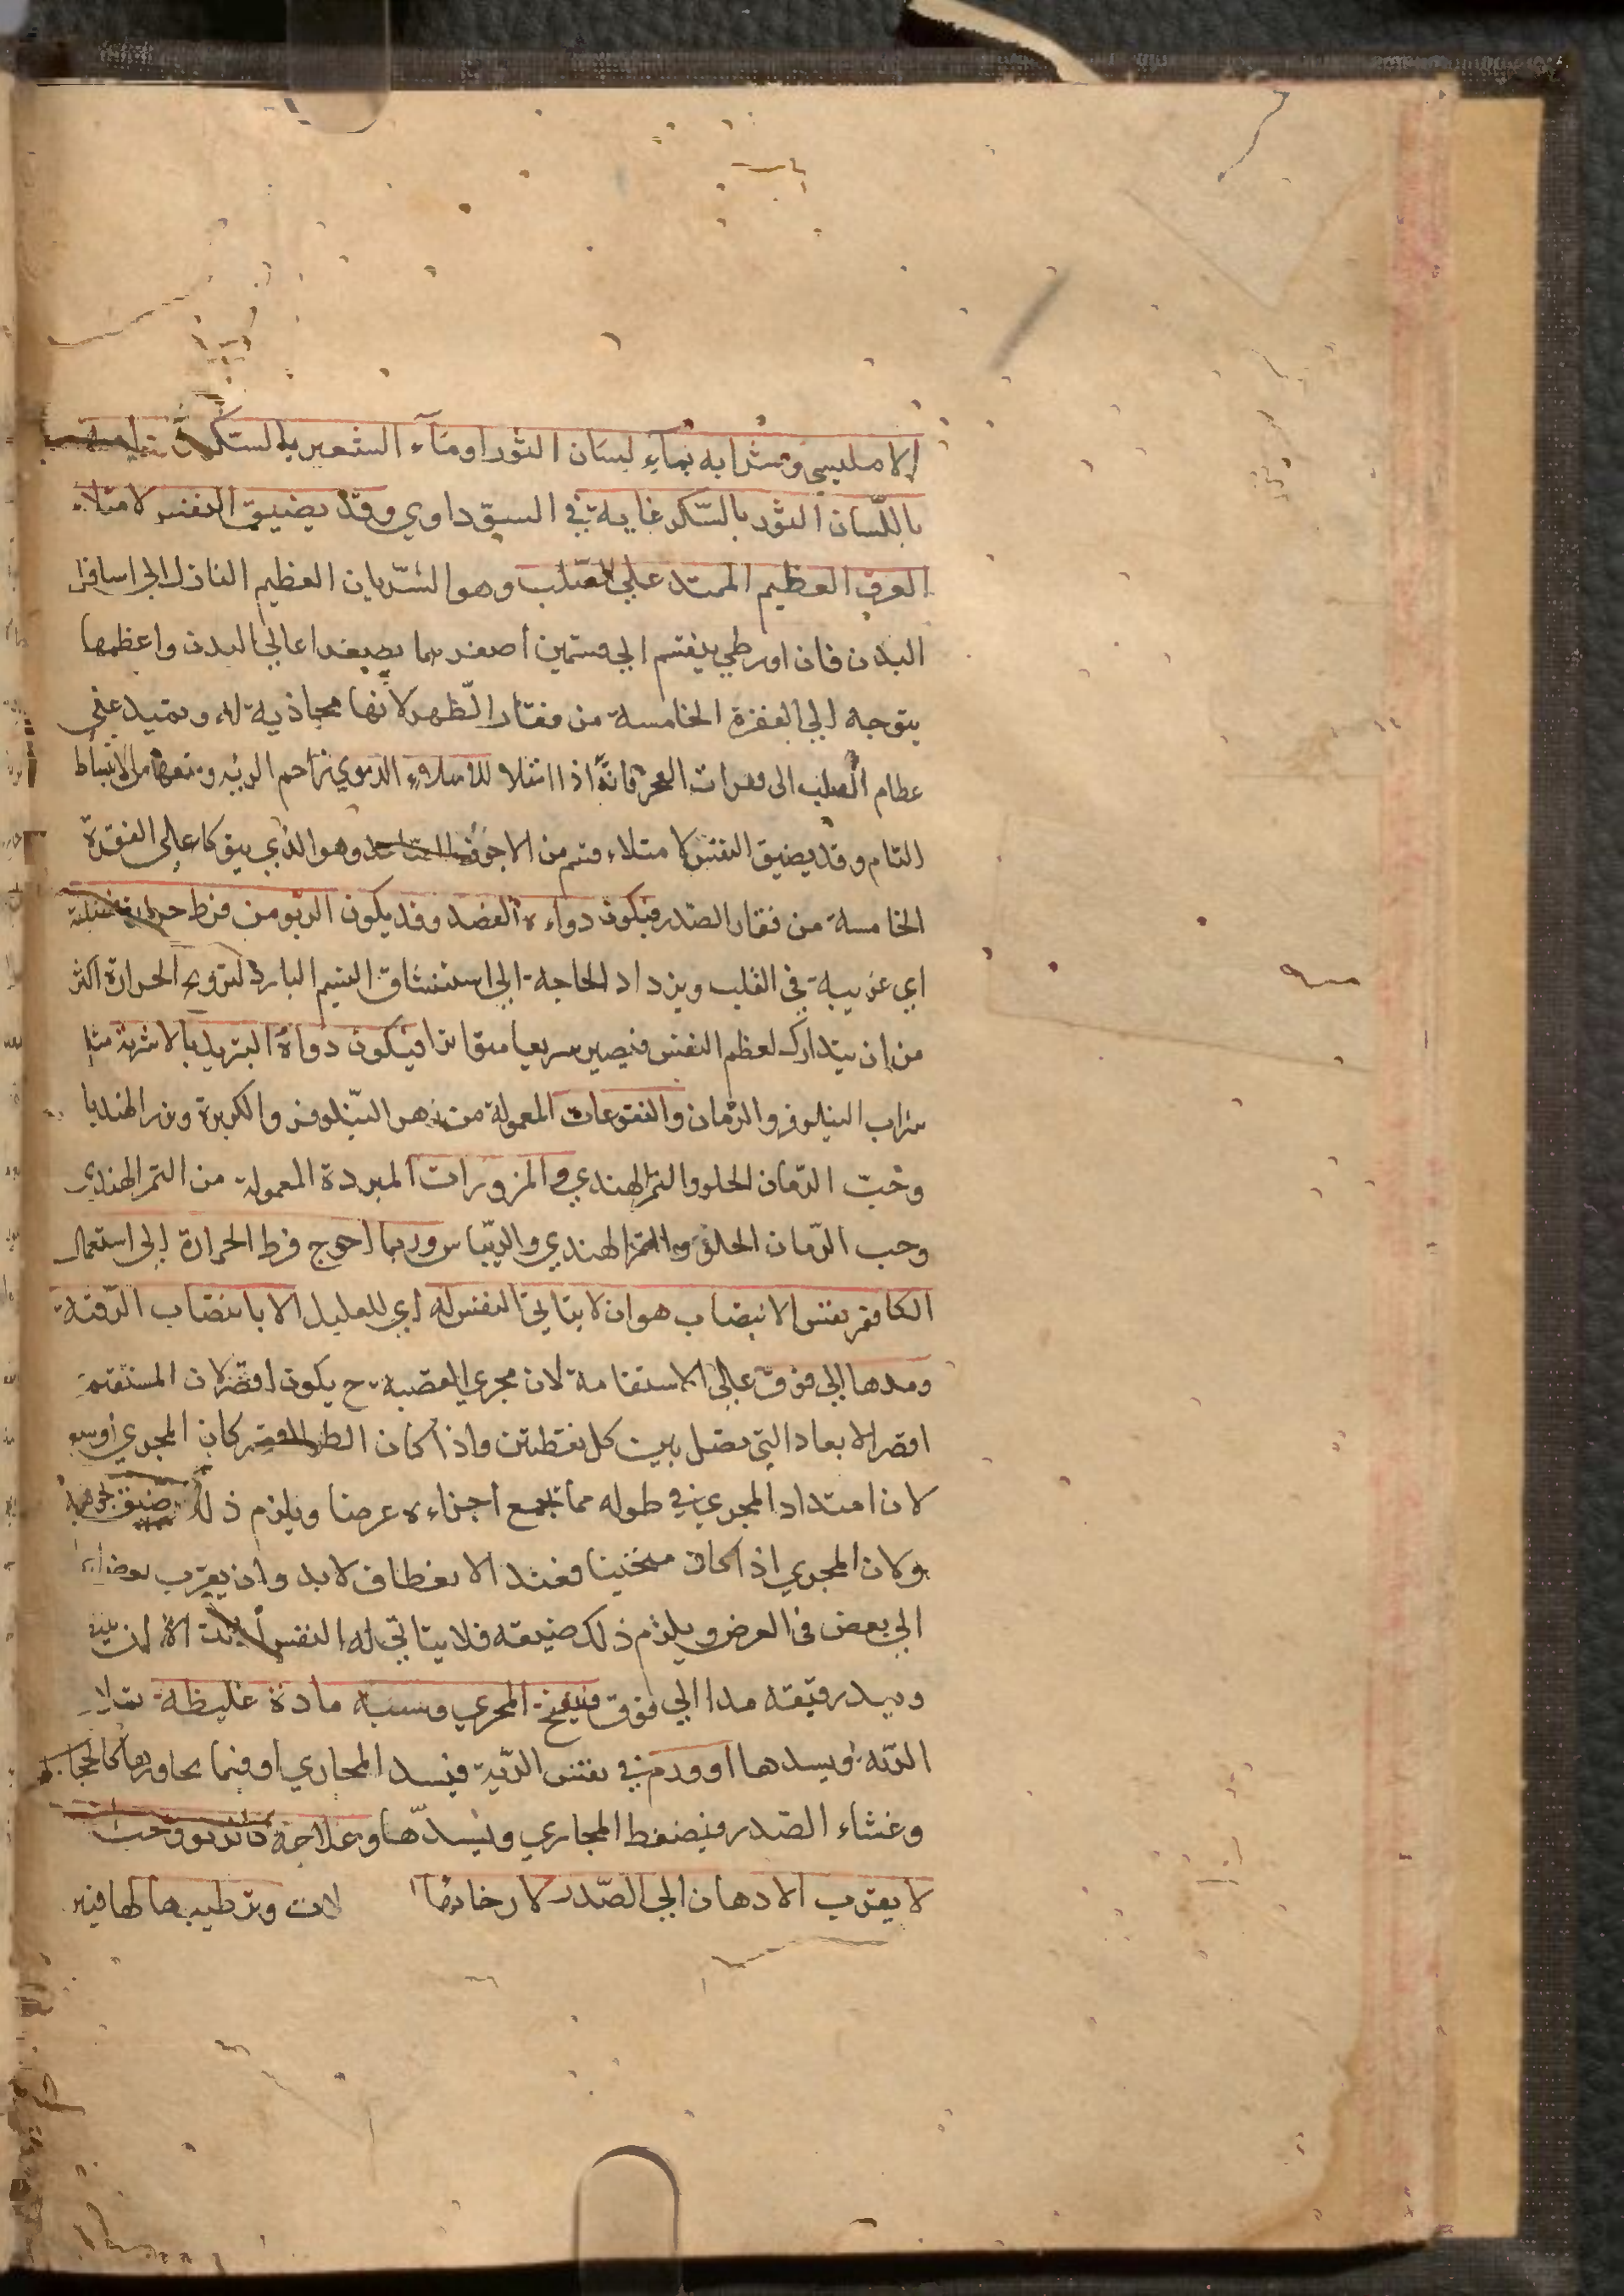 الامليسي وشرابه بماء لسان الثور او مآء الشعير بالسكر
باللسان الثور بالسّكر غاية في السوداوي وقد يضيق النفس لامتلاء
العرق العظيم الممتد علي الصّلب وهو الشّريان العظيم النازل الي اسافل
البدن فان اورطي ينقسم الي قسمين اصغرهما يصعد اعالي البدن واعظمها
يتوجه الي الفقرة الخامسة من فقار الظّهر لانها محاذية له ويمتد علي
عظام الصلب الى فقرات العجز فانّه اذا امتلا الدموي زاحم الريه ومنعها من الانبساط
التام وقد يضيق النفس لامتلاء قسم من الاجوف الصاعد وهو الذي يتوكا علي الفقرة
الخامسة من فقار الصّدر فيكون دواءه الفصد وقد يكون الربو من فرط حرارة
اي غريبة في القلب ويزداد الحاجة الي استنشاق النسيم البارد لترويح الحرارة اكثر
من ان يتدارك لعظم النفس فيصير سريعا متواترا فيكون دواؤه التبريد بالاشربة مثل
شراب النيلوفر والرّمان والنقوعات المعمولة من زهر النّيلوفر والكزبرة وبزر الهندبا
وحبّ الرّمان الحلو والتمر الهندي والمزورات المبردة المعمولة من التمر الهندي
وحب الرّمان الحلو والتمر الهندي والريّباس وربما احوج فرط الحرارة الي استعمال
الكافور نفس الانتصاب هو ان لا يتاتي النفس له اي للعليل الا بانتصاب الرّقبة
ومدها الي فوق علي الاستقامة لان مجري القصبة ح يكون اقصر لان المستقيم
اقصر الابعاد التي تصل بين كل نقطتين واذا كان كان المجري اوسع
لان امتداد المجري في طوله مما يجمع اجزاءه عرضا ويلزم ذلك ضيق
ولان المجري اذا كان منحنيا فعند الانعطاف لابد وان يقرب بعض
الي بعض في العرض ويلزم ذلك ضيقه فلا يتاتي له النفس
ويمد رقبته مدا الي فوق فينفتح المجري وسببه مادة غليظة تملا
الرّئه ويسدها او ورم في نفس الرّئة فيسد المجاري او فيما يجاورها كالحجاب
وغشاء الصّدر فيضغط المجاري ويسدّها وعلاجه كالربو
لا يقرب الادهان الي الصّدر لارخائها